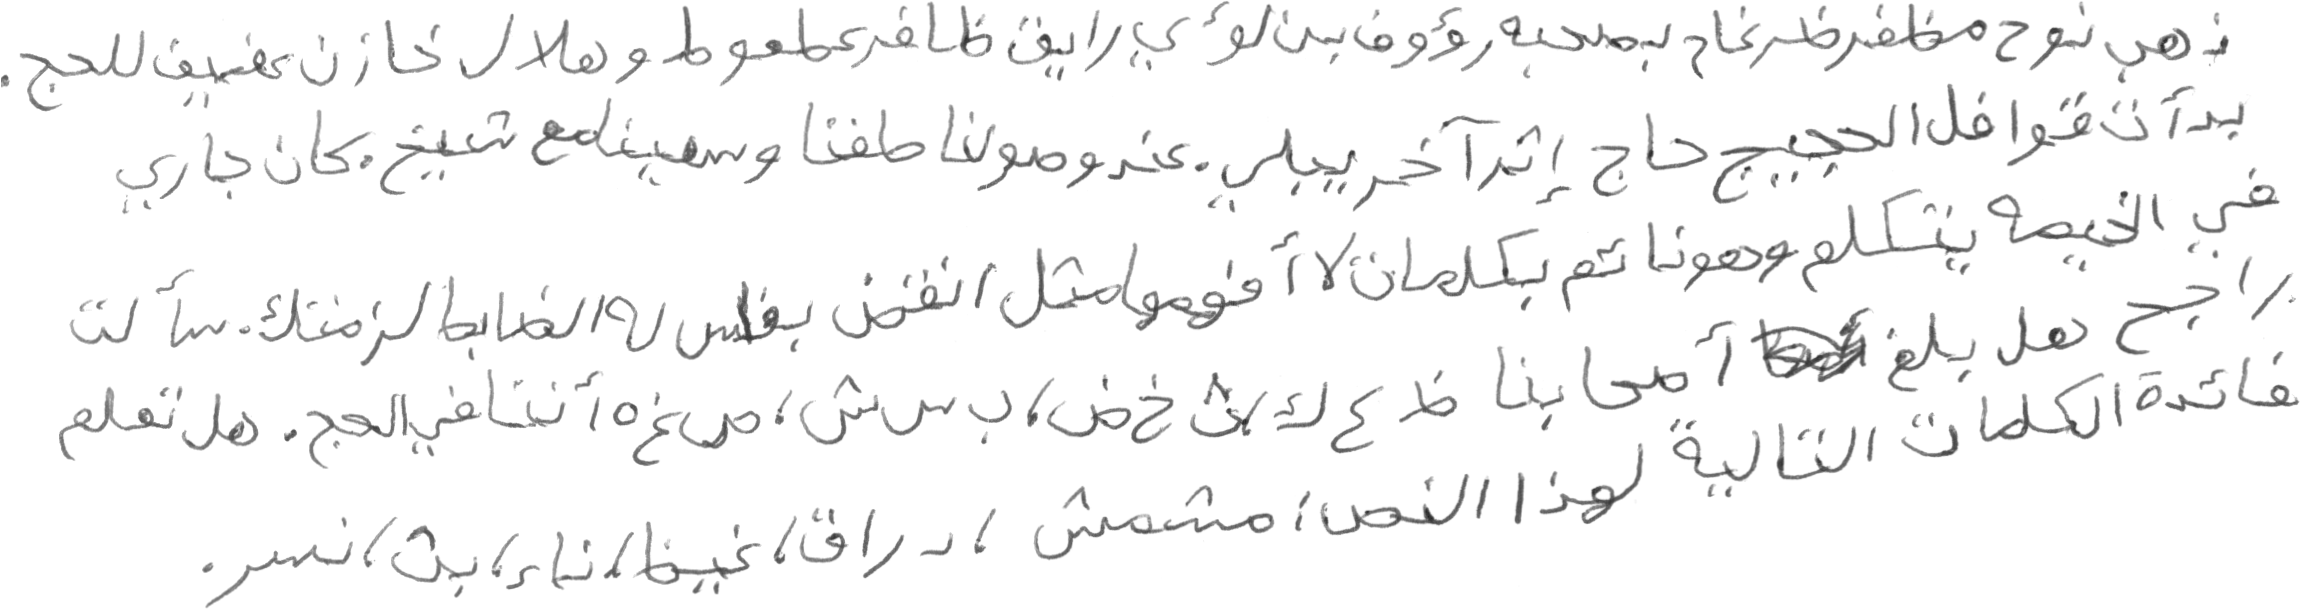 ذهب نوح مظفر ضرغام بصحبه رؤوف بن لؤي رايق ظافر عطعوط وهلال خازن عفيف للحج.
بدأت قوافل الحجيج حاج إثر آخر يبلي. عند وصولنا طفنا وسعينا مع شيخ. كان جاري
في الخيمه يتكلم وهو نائم بكلمات لا أفهمها مثل انقض بفاس له الضابط لزمتك. سألت
راجح هل بلغ أصحابنا ظ ع ك، ث خ ض، ب س ش، ص غ ه أننا في الحج. هل تعلم
فائدة الكلمات التالية لهذا النص؛ مشمش، دراق، غيظ، ناء، بث، نسر.